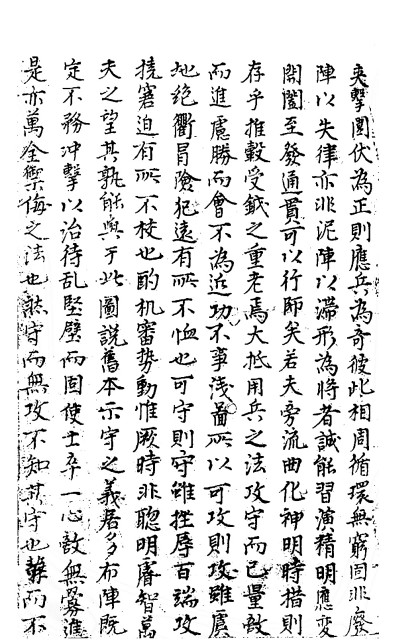 夾擊圍伏為正則應兵為奇彼此相周循環無窮固非廢
陣以失律亦非泥陣以滯形為將者誠能習演精明應變
開闔至發通貫可以行師矣若夫旁流曲化神明時措則
存乎推轂受鉞之重老焉大抵用兵之法攻守而已量敵
而進慮勝而會不為近功不事淺圖所以可攻則攻雖虜
地絕衢冒險犯遠有所不恤也可守則守雖挫辱百端攻
撓窘迫有所不校也酌机審勢動惟厥時非聰明睿智萬
夫之望其孰能與于此圖說舊本示守之義居多布陣既
定不務冲擊以治待乱堅壁而固使士卒一心敵無釁進
是亦萬全禦侮之法也然守而無攻不知其守也弊而不